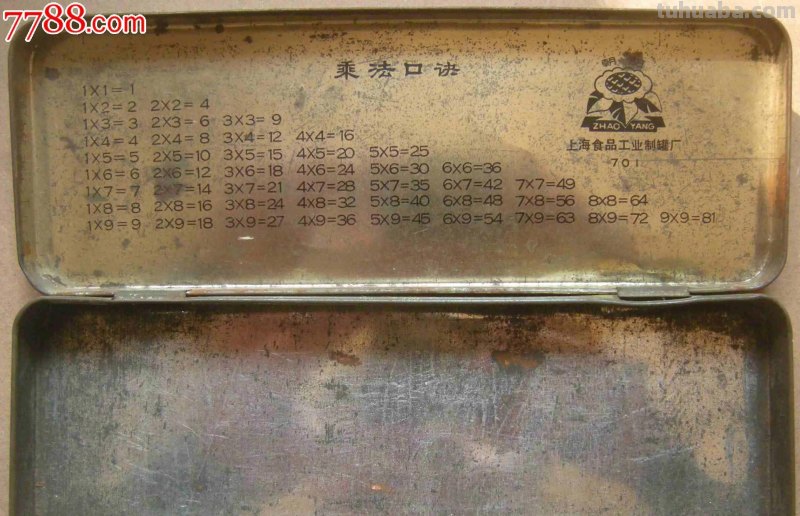 7788.com
tuhuaba.com
乘法口诀
朝阳
ZHAO YANG
上海食品工业制罐厂
701
1X1=1
1X2=2 2X2=4
1X3=3 2X3=6 3X3=9
1X4=4 2X4=8 3X4=12 4X4=16
1X5=5 2X5=10 3X5=15 4X5=20 5X5=25
1X6=6 2X6=12 3X6=18 4X6=24 5X6=30 6X6=36
1X7=7 2X7=14 3X7=21 4X7=28 5X7=35 6X7=42 7X7=49
1X8=8 2X8=16 3X8=24 4X8=32 5X8=40 6X8=48 7X8=56 8X8=64
1X9=9 2X9=18 3X9=27 4X9=36 5X9=45 6X9=54 7X9=63 8X9=72 9X9=81